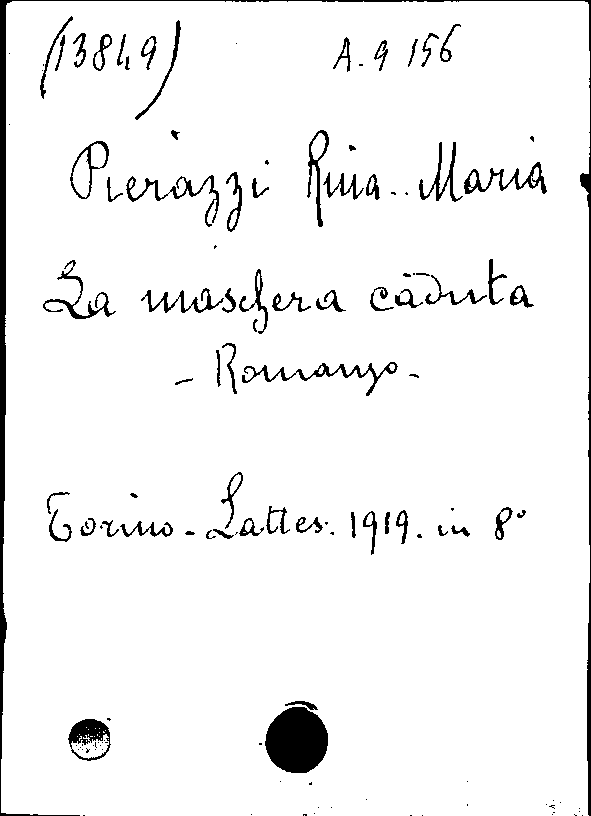 (13849) A. 9 156
Pierazzi Rina-Maria
La maschera caduta
- Romanzo -
Torino - Lattes. 1919. in 8°